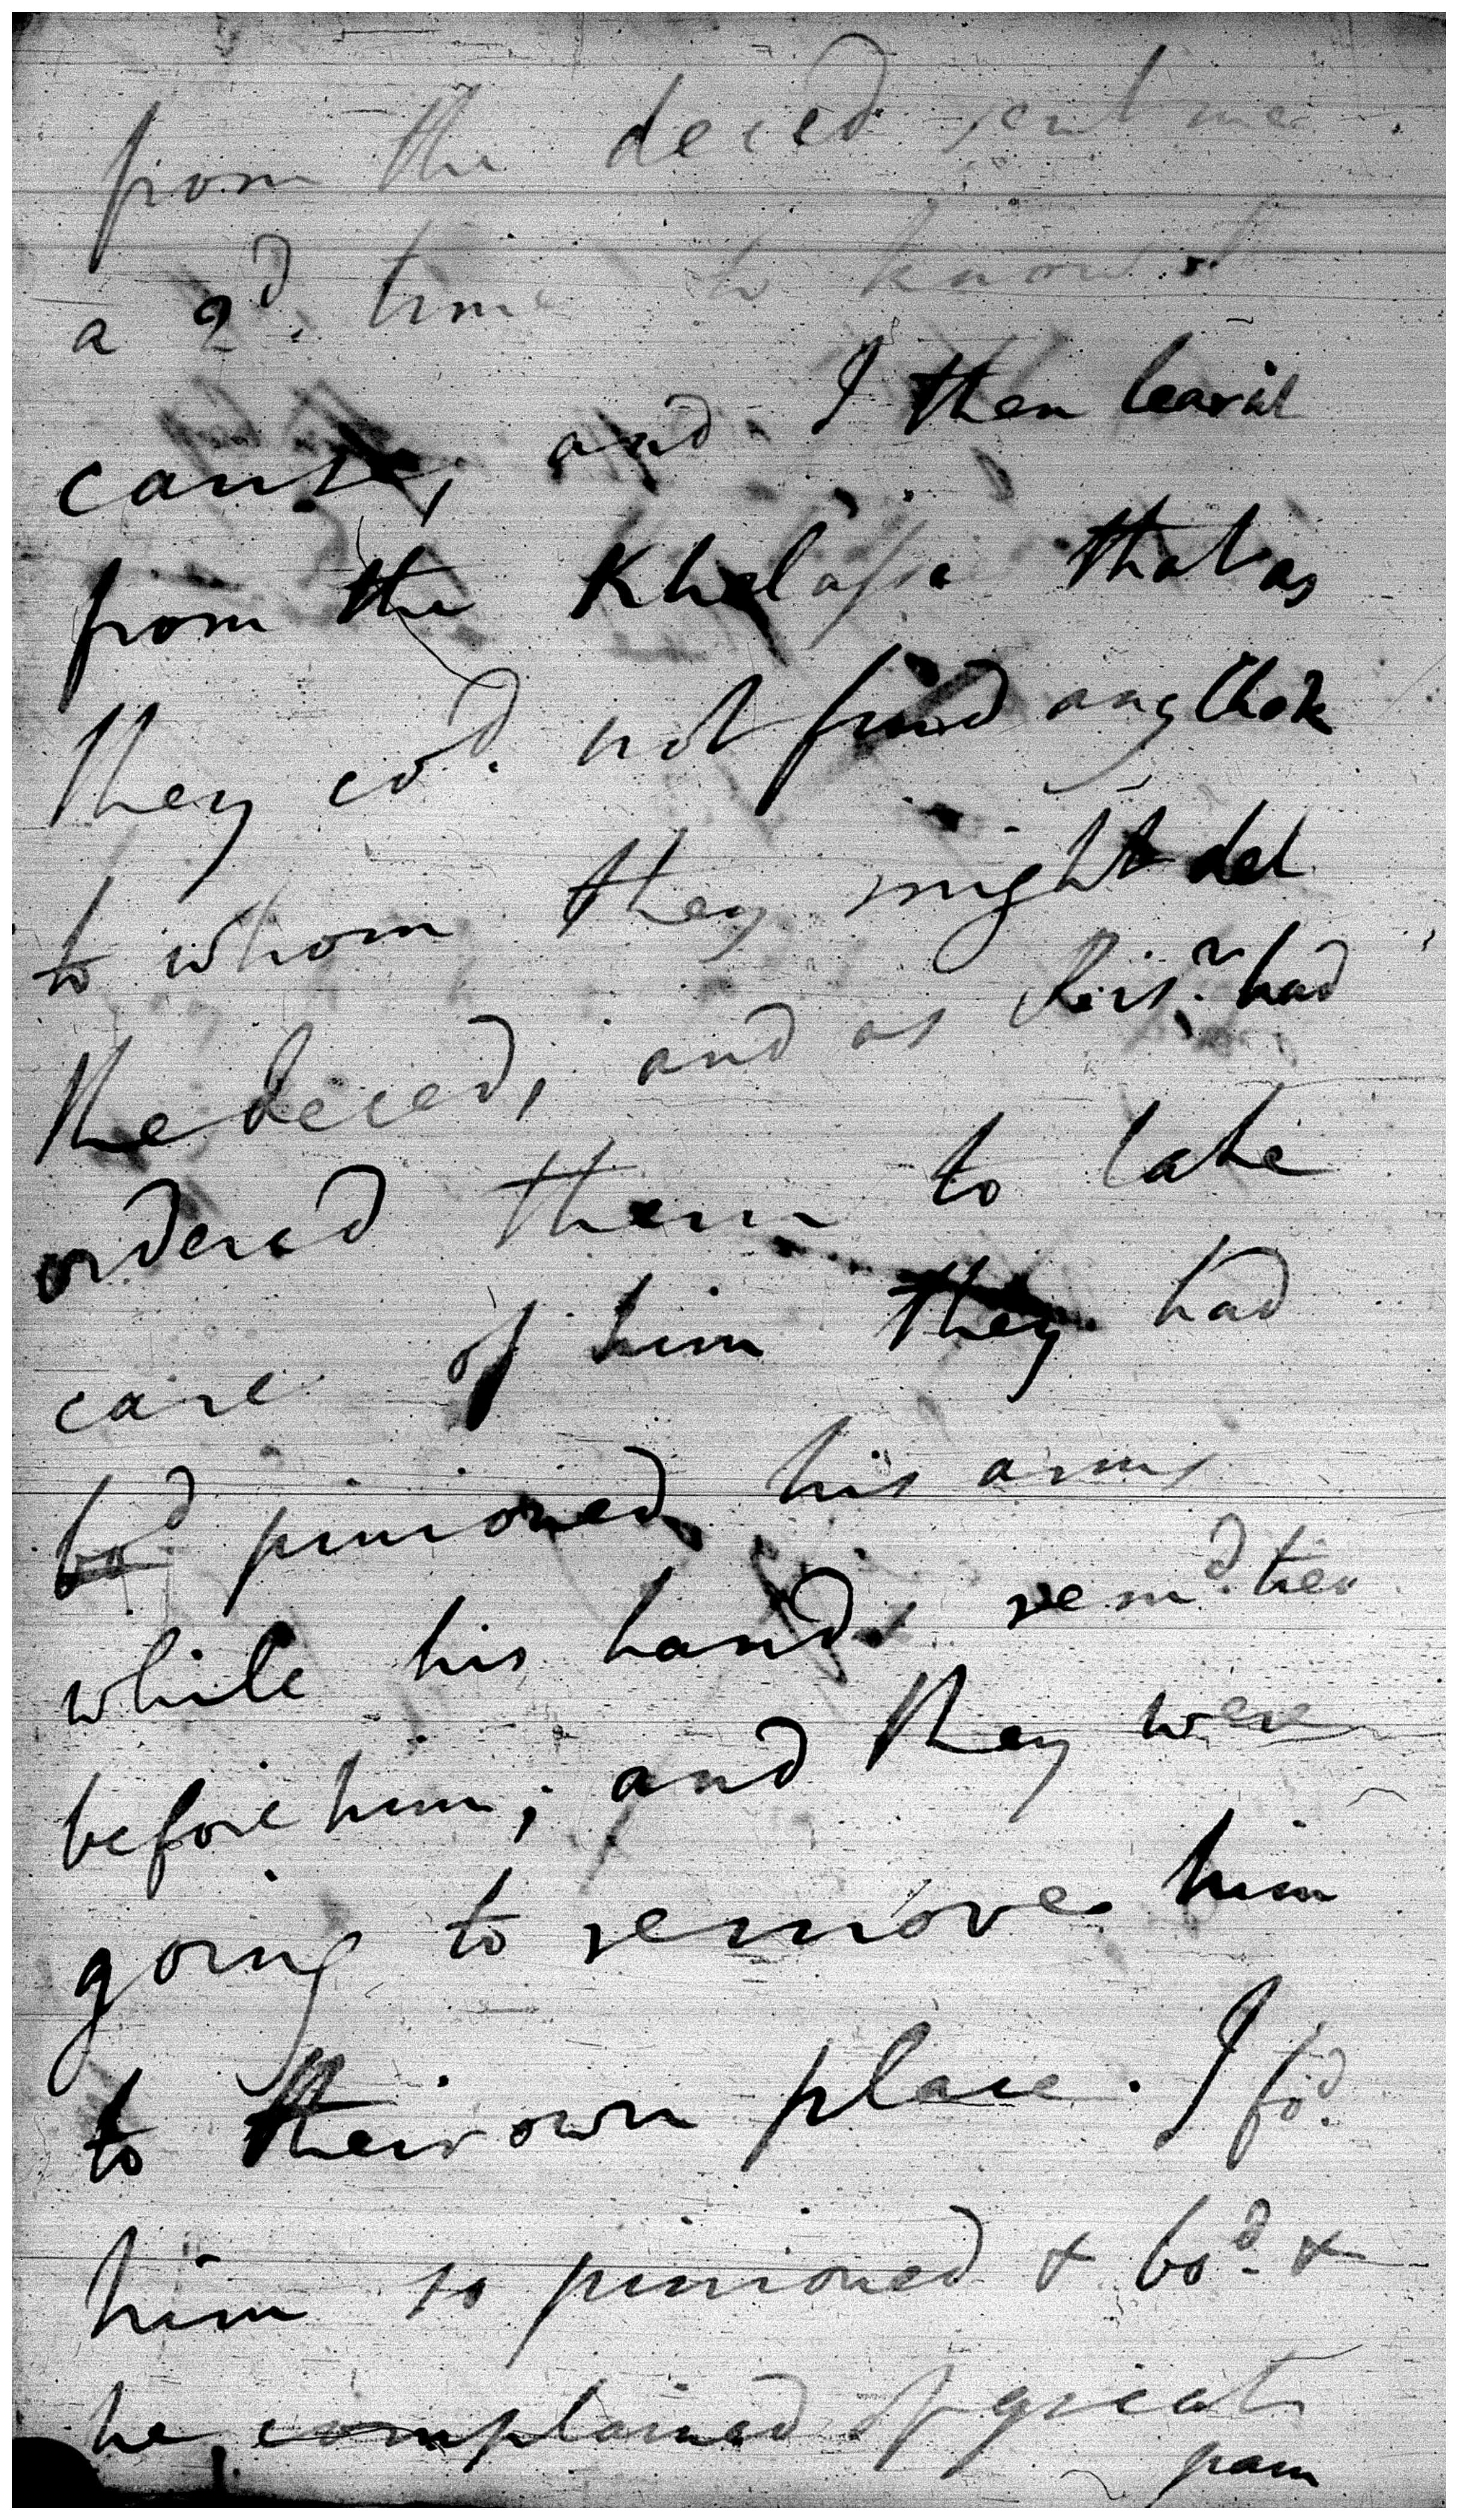 from the deced sent me
a 2d. time to know ye
cause, and I then learnt
from the Khelassee that as
they cod. not find any Chok
to whom they might del
the deced, and as Prisr. had
ordered them to take
care of him they had
bod pinioned his arms
while his hands remd. tied
before him; and they were
going to remove him
to their own place. I fod.
him so pinioned & bod. &
he complained of great
pain